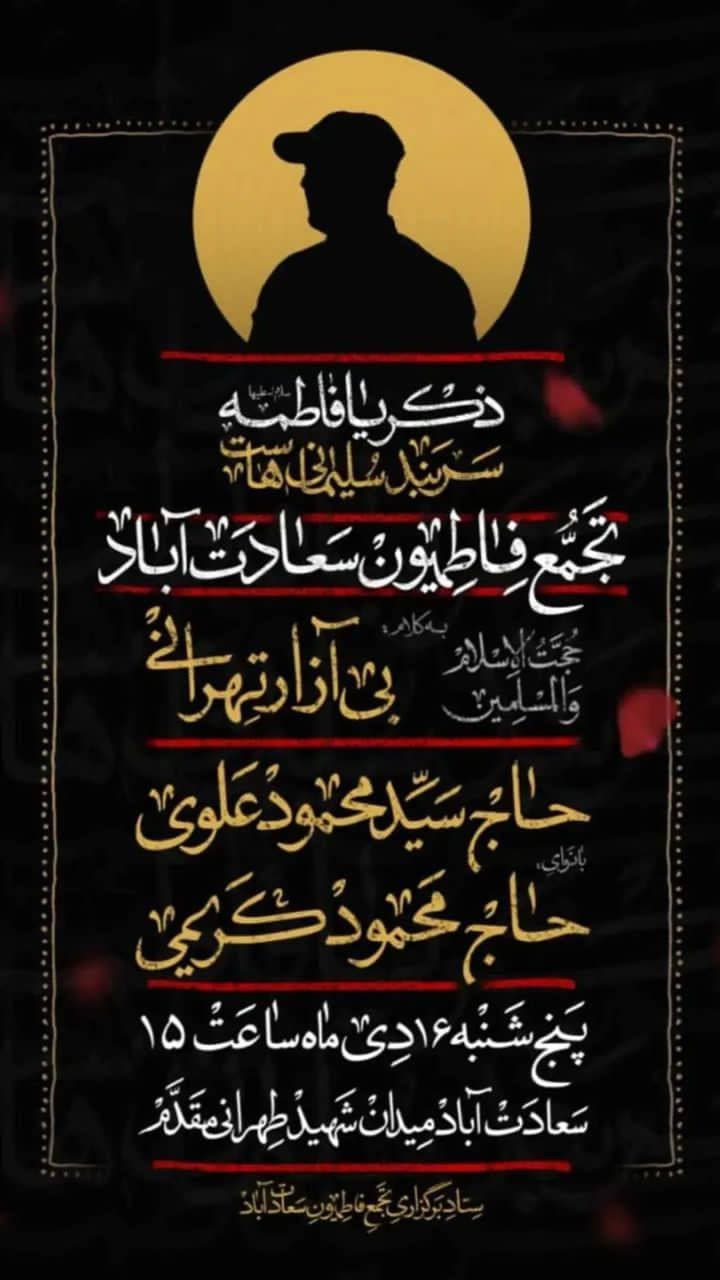 ذکر یا فاطمه سلام‌الله‌علیها
سربند سلیمانی هاست
تجمّع فاطمیون سعادت آباد
به کلام:
حجت الاسلام والمسلمین
بی آزار تهرانی
حاج سیّد محمود علوی
بانوای،
حاج محمود کریمی
پنج شنبه ۱۶ دی ماه ساعت ۱۵
سعادت آباد میدان شهید طهرانی مقدّم
ستاد برگزاری تجمع فاطمیون سعادت آباد